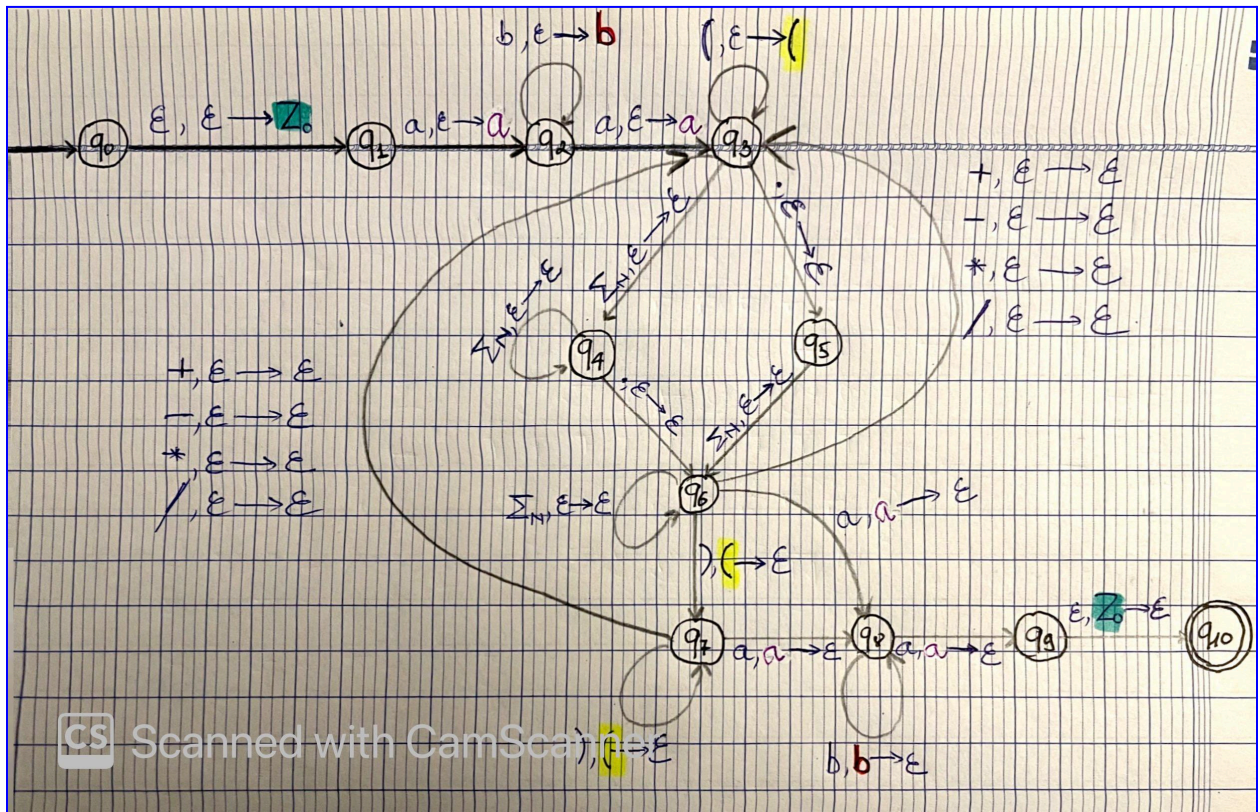 b,ε→b
(,ε→(
q0
ε, ε→Z0
q1
a,ε→a
q2
a,ε→a
q3
+,ε→ε
-,ε→ε
*,ε→ε
/,ε→ε
ΣN,ε→ε
.,ε→ε
ΣN,ε→ε
q4
q5
+,ε→ε
-,ε→ε
*,ε→ε
/,ε→ε
.,ε→ε
ΣN,ε→ε
ΣN,ε→ε
q6
a,a→ε
),(→ε
q7
a,a→ε
q8
a,a→ε
q9
ε,Z0→ε
q10
),(→ε
b,b→ε
CS Scanned with CamScanner